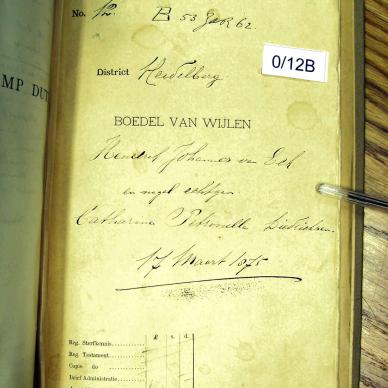 MP DUT
No. 12. B 53 GeR 62.
0/12B
District Heidelberg
BOEDEL VAN WIJLEN
Hendrik Johannes van Eck
en nagel. echtgen.
Catharina Petronella
17 Maart 1875
R s. d.
Reg. Sterfkennis
Reg. Testament
Copie do
Brief Administratie